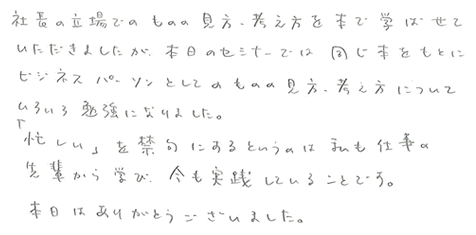 社長の立場でのものの見方・考え方を本で学ばせて
いただきましたが、本日のセミナーでは同じ本をもとに
ビジネスパーソンとしてのものの見方・考え方について
いろいろ勉強になりました。
「忙しい」を禁句にするというのは私も仕事の
先輩から学び、今も実践していることです。
本日はありがとうございました。